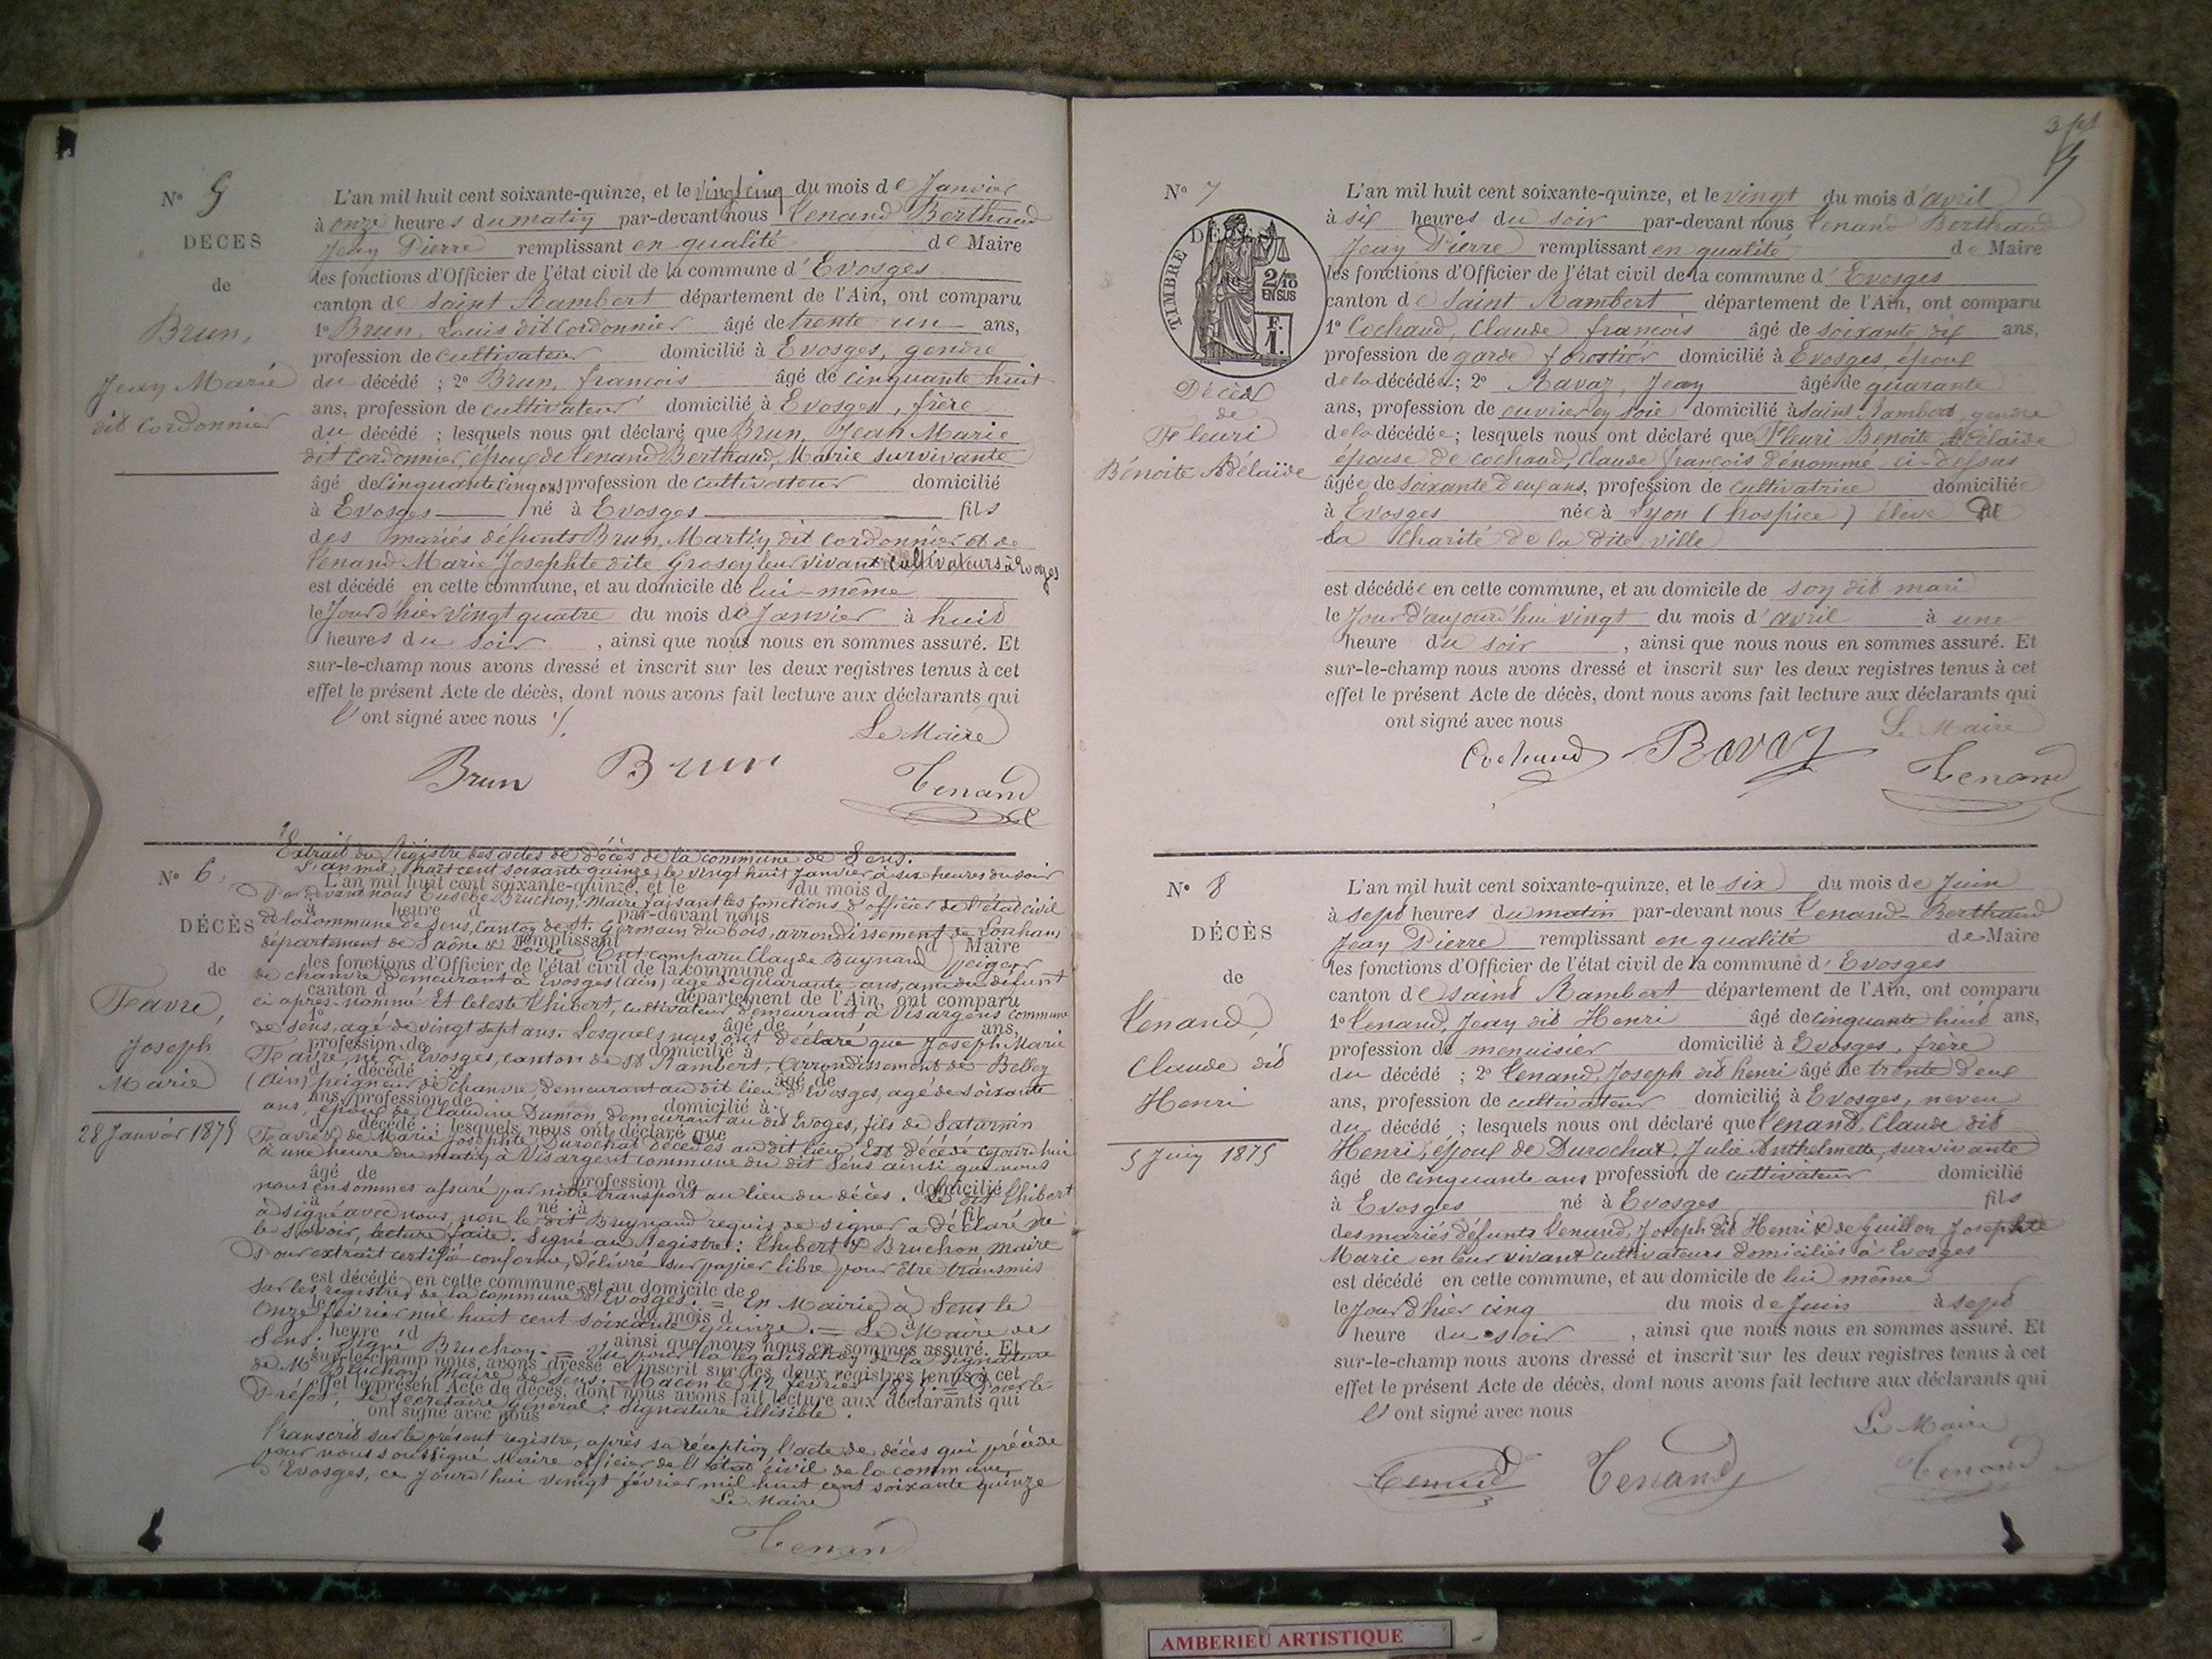 N° 5
DÉCÈS
de
Brun,
Jean Marie
dit Cordonnier
L'an mil huit cent soixante-quinze, et le vingt cinq du mois de Janvier
à onze heures du matin par-devant nous Tenand Berthand
Jean Pierre remplissant en qualité de Maire
les fonctions d'Officier de l'état civil de la commune d'Evosges
canton de Saint Rambert département de l'Ain, ont comparu
1° Brun, Louis dit Cordonnier âgé de trente un ans,
profession de cultivateur domicilié à Evosges, gendre
du décédé ; 2° Brun, françois âgé de cinquante huit
ans, profession de cultivateur domicilié à Evosges, frère
du décédé ; lesquels nous ont déclaré que Brun, Jean Marie
dit Cordonnier, époux de Tenand Berthand, Marie survivante
âgé de cinquante cinq ans profession de cultivateur domicilié
à Evosges né à Evosges fils
des mariés défunts Brun, Martin dit Cordonnier et de
Tenand Marie Josephte dite Grosey leur vivant cultivateurs à Evoges
est décédé en cette commune, et au domicile de lui-même
le Jour d'hier vingt quatre du mois de Janvier à huit
heures du soir , ainsi que nous nous en sommes assuré. Et
sur-le-champ nous avons dressé et inscrit sur les deux registres tenus à cet
effet le présent Acte de décès, dont nous avons fait lecture aux déclarants qui
l'ont signé avec nous
Le Maire
Brun Brun Tenand
N° 6
DÉCÈS
de
Favre,
Joseph
Marie
28 Janvier 1875
Extrait du Registre des actes de décès de la commune de Sens.
L'an mil huit cent soixante quinze, le vingt huit Janvier à six heures du soir
L'an mil huit cent soixante-quinze, et le du mois d
Par devant nous Eusèbe Bruchon, Maire faisant les fonctions d'officier de l'état civil
à heure d par-devant nous
de la commune de Sens, canton de St. Germain du bois, arrondissement de Louhans
remplissant d Maire
département de Saône & Loire, Ont comparu Claude Buynand peigneur
les fonctions d'Officier de l'état civil de la commune d
de chanvre demeurant à Evosges (ain) agé de quarante ans, ami du défunt
canton d département de l'Ain, ont comparu
ci après-nommé Et Celeste Thibert, cultivateur demeurant à Visargens commune
1° âgé de ans,
de Sens, agé de vingt sept ans. Lesquels nous ont déclaré que Joseph Marie
profession de domicilié à
Favre, né à Evosges, canton de St Rambert, Arrondissement de Belley
d décédé ; 2° âgé de
(Ain) peigneur de chanvre, demeurant au dit lieu d'Evosges, agé de soixante
ans, profession de domicilié à
ans, époux de Claudine Dumon, demeurant au dit Evoges, fils de Saturnin
d décédé ; lesquels nous ont déclaré que
Favre & de Marie Josephte Durochat décédés au dit lieu, Est décédé cejourd'hui
à une heure du matin à Visargent commune du dit Sens ainsi que nous
âgé de profession de domicilié
nous en sommes assuré par notre transport au lieu du décès. Le dit Thibert
à né à fil
à signé avec nous, non le dit Buynand requis de signer a déclaré ne
le savoir, lecture faite. Signé au Registre : Thibert & Bruchon Maire
Pour extrait certifié conforme, délivré sur papier libre pour être transmis
est décédé en cette commune, et au domicile de
sur les registres de la commune d'Evosges. = En Mairie à Sens le
le du mois d à
Onze février mil huit cent soixante quinze. = Le Maire de
heure d , ainsi que nous nous en sommes assuré. Et
Sens. Signé Bruchon. = Vu pour la légalisation de la signature
sur-le-champ nous avons dressé et inscrit sur les deux registres tenus à cet
de Mr Bruchon, Maire de Sens. Macon le 12 février 1875. = Pour le
effet le présent Acte de décès, dont nous avons fait lecture aux déclarants qui
Préfet, Le Secrétaire général : Signature illisible.
ont signé avec nous
Transcrit sur le présent registre, après sa réception, l'acte de décès qui précède
par nous soussigné Maire officier de l'état civil de la commune
d'Evosges, ce Jourd'hui vingt février mil huit cent soixante quinze
Le Maire
Tenand
N° 7
DÉCÈS
TIMBRE
2/10
EN SUS
F.
1.
Décès
de
Fleuri
Bénoite Adélaïde
L'an mil huit cent soixante-quinze, et le vingt du mois d'avril
à six heures du soir par-devant nous Tenand Berthand
Jean Pierre remplissant en qualité de Maire
les fonctions d'Officier de l'état civil de la commune d'Evosges
canton de Saint Rambert département de l'Ain, ont comparu
1° Cochaud, Claude françois âgé de soixante dix ans,
profession de garde forestier domicilié à Evosges, époux
de la décédée ; 2° Ravaz, Jean âgé de quarante
ans, profession de ouvrier en soie domicilié à Saint Rambert, gendre
de la décédée ; lesquels nous ont déclaré que Fleuri Benoite Adélaïde
épouse de Cochaud, Claude françois dénommé ci-dessus
âgée de soixante deux ans, profession de cultivatrice domiciliée
à Evosges née à Lyon (hospice) élève de
la Charité de la dite ville
est décédée en cette commune, et au domicile de son dit mari
le Jour d'aujourd'hui vingt du mois d'avril à une
heure du soir , ainsi que nous nous en sommes assuré. Et
sur-le-champ nous avons dressé et inscrit sur les deux registres tenus à cet
effet le présent Acte de décès, dont nous avons fait lecture aux déclarants qui
ont signé avec nous
Le Maire
Cochaud Ravaz Tenand
N° 8
DÉCÈS
de
Tenand,
Claude dit
Henri
5 Juin 1875
L'an mil huit cent soixante-quinze, et le six du mois de Juin
à sept heures du matin par-devant nous Tenand Berthand
Jean Pierre remplissant en qualité de Maire
les fonctions d'Officier de l'état civil de la commune d'Evosges
canton de Saint Rambert département de l'Ain, ont comparu
1° Tenand, Jean dit Henri âgé de cinquante huit ans,
profession de menuisier domicilié à Evosges, frère
du décédé ; 2° Tenand, Joseph dit henri âgé de trente deux
ans, profession de cultivateur domicilié à Evosges, neveu
du décédé ; lesquels nous ont déclaré que Tenand, Claude dit
Henri, époux de Durochat, Julie Anthelmette, survivante
âgé de cinquante ans profession de cultivateur domicilié
à Evosges né à Evosges fils
des mariés défunts Tenand, Joseph dit Henri & de Guillon Josephte
Marie en leur vivant cultivateurs domiciliés à Evosges
est décédé en cette commune, et au domicile de lui même
le Jour d'hier cinq du mois de Juin à sept
heure du soir , ainsi que nous nous en sommes assuré. Et
sur-le-champ nous avons dressé et inscrit sur les deux registres tenus à cet
effet le présent Acte de décès, dont nous avons fait lecture aux déclarants qui
ont signé avec nous
Le Maire
Tenand Tenand Tenand
AMBERIEU ARTISTIQUE